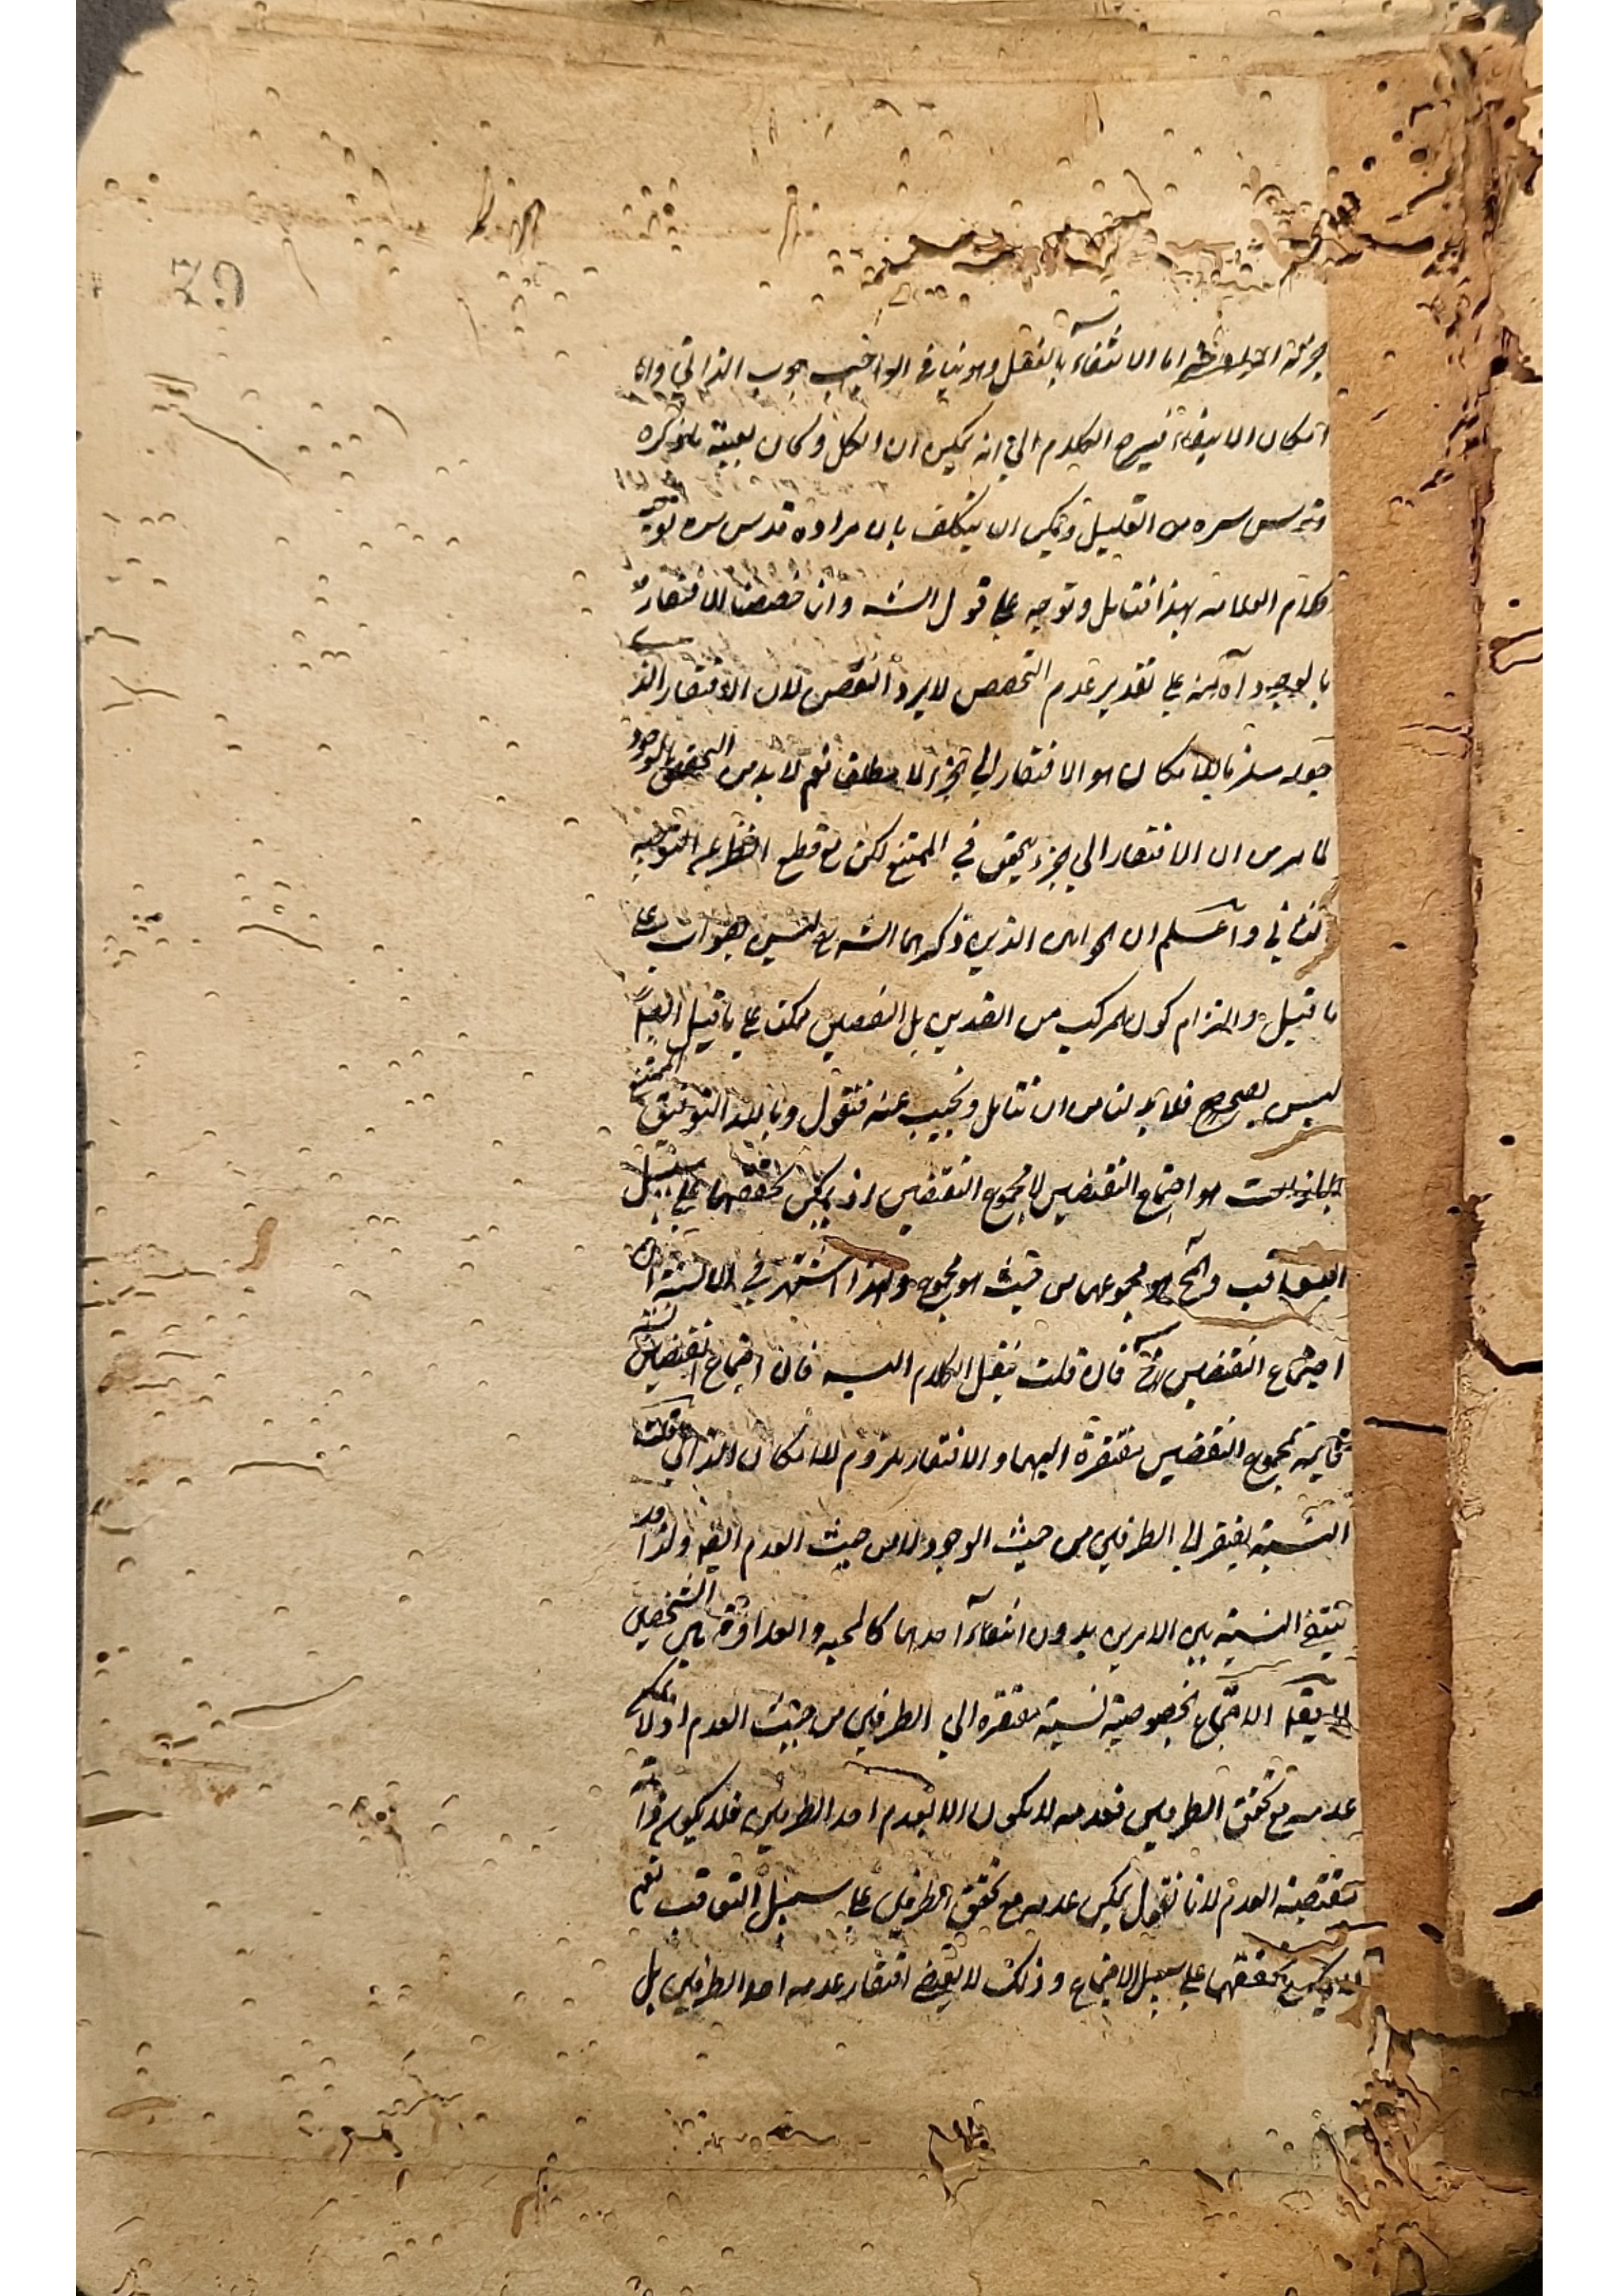 اما الانتفاء بالفعل وهو ينافي الواجب الذاتي واما
امكان الانتفاء فيرجع الكلام الي انه يمكن ان الكل وكان بعينه ما ذكره
قدس سره من التعليل ويمكن ان يتكلف بان مراده قدس سره توجيه
كلام العلامه بهذا فتامل وتوجه علي قول الشه وان خصصنا الافتقار
بالوجود آه بانه علي تقدير عدم التخصص لا يرد النقض لان الافتقار الذ
جعله ملزوما للامكان هو الافتقار الي الجزء لا مطلقا نعم لا بد من التخصيص بالوجود
لما مر من ان الافتقار الي جزء يتحقق في الممتنع لكن مع قطع النظر عن التوجيه
الثاني واعلم ان الجوابين الذين ذكرهما الشه ليس بجواب علي
ما قيل والتزام كون المركب من الضدين بل النقيضين ممكنا علي ما قيل ايضا
ليس بصحيح فلا بد لنا من ان نتامل ونجيب عنه فنقول وبالله التوفيق الممتنع
بالذات هو اجتماع النقيضين لا مجموع النقيضين اذ يمكن تحققهما علي سبيل
التعاقب والمح هو مجموعهما من حيث هو مجموع ولهذا اشتهر في الالسنة ان
اجتماع النقيضين مح فان قلت ننقل الكلام اليه فان اجتماع النقيضين نسبة
قايمة بمجموع النقيضين مفتقرة اليهما والافتقار ملزوم للامكان الذاتي قلت
النسبة يفتقر الي الطرفين من حيث الوجود لا من حيث العدم ايضا ولذا قد
ينتفي النسبة بين الامرين بدون انتفاء احدهما كالمحبه والعداوة بين الشخصين
لا يقال الاجتماع بخصوصيته نسبة مفتقرة الي الطرفين من حيث العدم اذ لا يمكن
عدمه مع تحقق الطرفين فعدمه لا يكون الا بعدم احد الطرفين فلا يكون ذاته
مقتضية العدم لانا نقول يمكن عدمه مع تحقق الطرفين علي سبيل التعاقب نعم
لا يمكن تحققهما علي سبيل الاجتماع وذلك لا يقتضي افتقار عدمه احد الطرفين بل